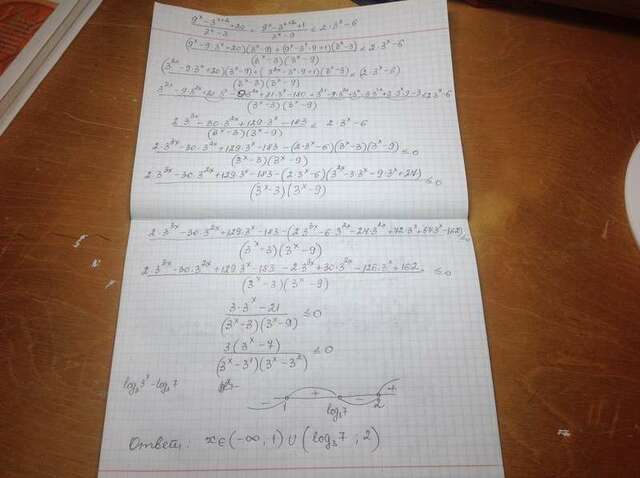 (9^x − 3^(x+2) + 20)/(3^x − 3) + (9^x − 3^(x+2) + 1)/(3^x − 9) ≤ 2·3^x − 6
((9^x − 9·3^x + 20)(3^x − 9) + (9^x − 3^x·9 + 1)(3^x − 3))/((3^x − 3)(3^x − 9)) ≤ 2·3^x − 6
((3^(2x) − 9·3^x + 20)(3^x − 9) + (3^(2x) − 3^x·9 + 1)(3^x − 3))/((3^x − 3)(3^x − 9)) ≤ (2·3^x − 6)
(2·3^(3x) − 30·3^(2x) + 129·3^x − 183)/((3^x − 3)(3^x − 9)) ≤ 2·3^x − 6
(2·3^(3x) − 30·3^(2x) + 129·3^x − 183 − (2·3^x − 6)(3^x − 3)(3^x − 9))/((3^x − 3)(3^x − 9)) ≤ 0
(2·3^(3x) − 30·3^(2x) + 129·3^x − 183 − (2·3^x − 6)(3^(2x) − 3·3^x − 9·3^x + 27))/((3^x − 3)(3^x − 9)) ≤ 0
(2·3^(3x) − 30·3^(2x) + 129·3^x − 183 − (2·3^(3x) − 6·3^(2x) − 24·3^(2x) + 72·3^x + 54·3^x − 162))/((3^x − 3)(3^x − 9)) ≤ 0
(2·3^(3x) − 30·3^(2x) + 129·3^x − 183 − 2·3^(3x) + 30·3^(2x) − 126·3^x + 162)/((3^x − 3)(3^x − 9)) ≤ 0
(3·3^x − 21)/((3^x − 3)(3^x − 9)) ≤ 0
3(3^x − 7)/((3^x − 3^1)(3^x − 3^2)) ≤ 0
log₃3^x − log₃7
− + − +
1 log₃7 2
Ответ: x∈(−∞; 1)∪(log₃7; 2)